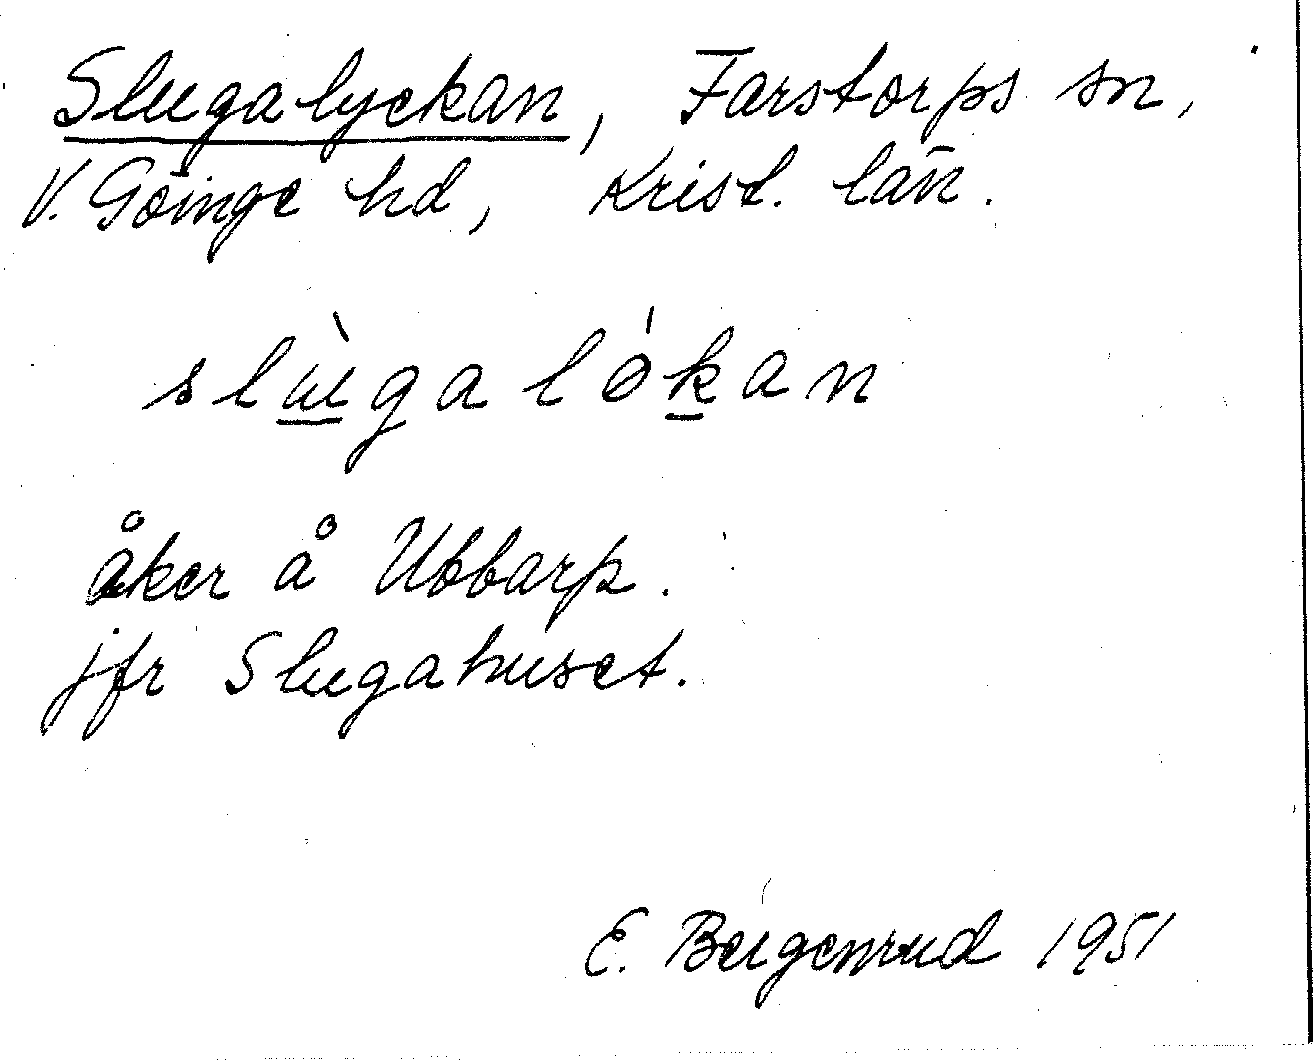 Slugalyckan, Farstorps sn,
V. Göinge hd, Krist. län.
slùgaló̱kan
åker å Ubbarp.
jfr Slugahuset.
E. Bergenrud 1951